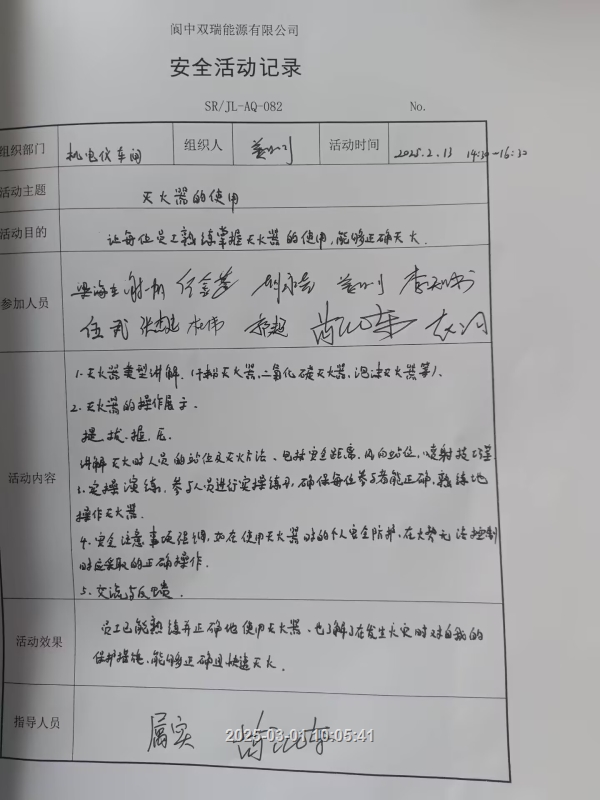 阆中双瑞能源有限公司
安全活动记录
SR/JL-AQ-082 No.
组织部门 机电仪车间 组织人 活动时间 2025.2.13 14:30-16:30
活动主题 灭火器的使用
活动目的 让每位员工熟练掌握灭火器的使用,能够正确灭火.
参加人员
伍武
活动内容
1.灭火器类型讲解.(干粉灭火器,二氧化碳灭火器,泡沫灭火器等).
2.灭火器的操作展示.
提.拔.握.压.
讲解灭火时人员的站位及灭火方法、包括安全距离.风向站位,喷射技巧等
3.实操演练.参与人员进行实操练习,确保每位参与者能正确.熟练地
操作灭火器.
4.安全注意事项强调,如在使用灭火器时的个人安全防护,在火势无法控制
时应采取的正确操作.
5.交流与反馈.
活动效果 员工已能熟练并正确地使用灭火器、也了解了在发生火灾时对自我的
保护措施,能够正确且快速灭火.
指导人员 属实
2025-03-01 10:05:41